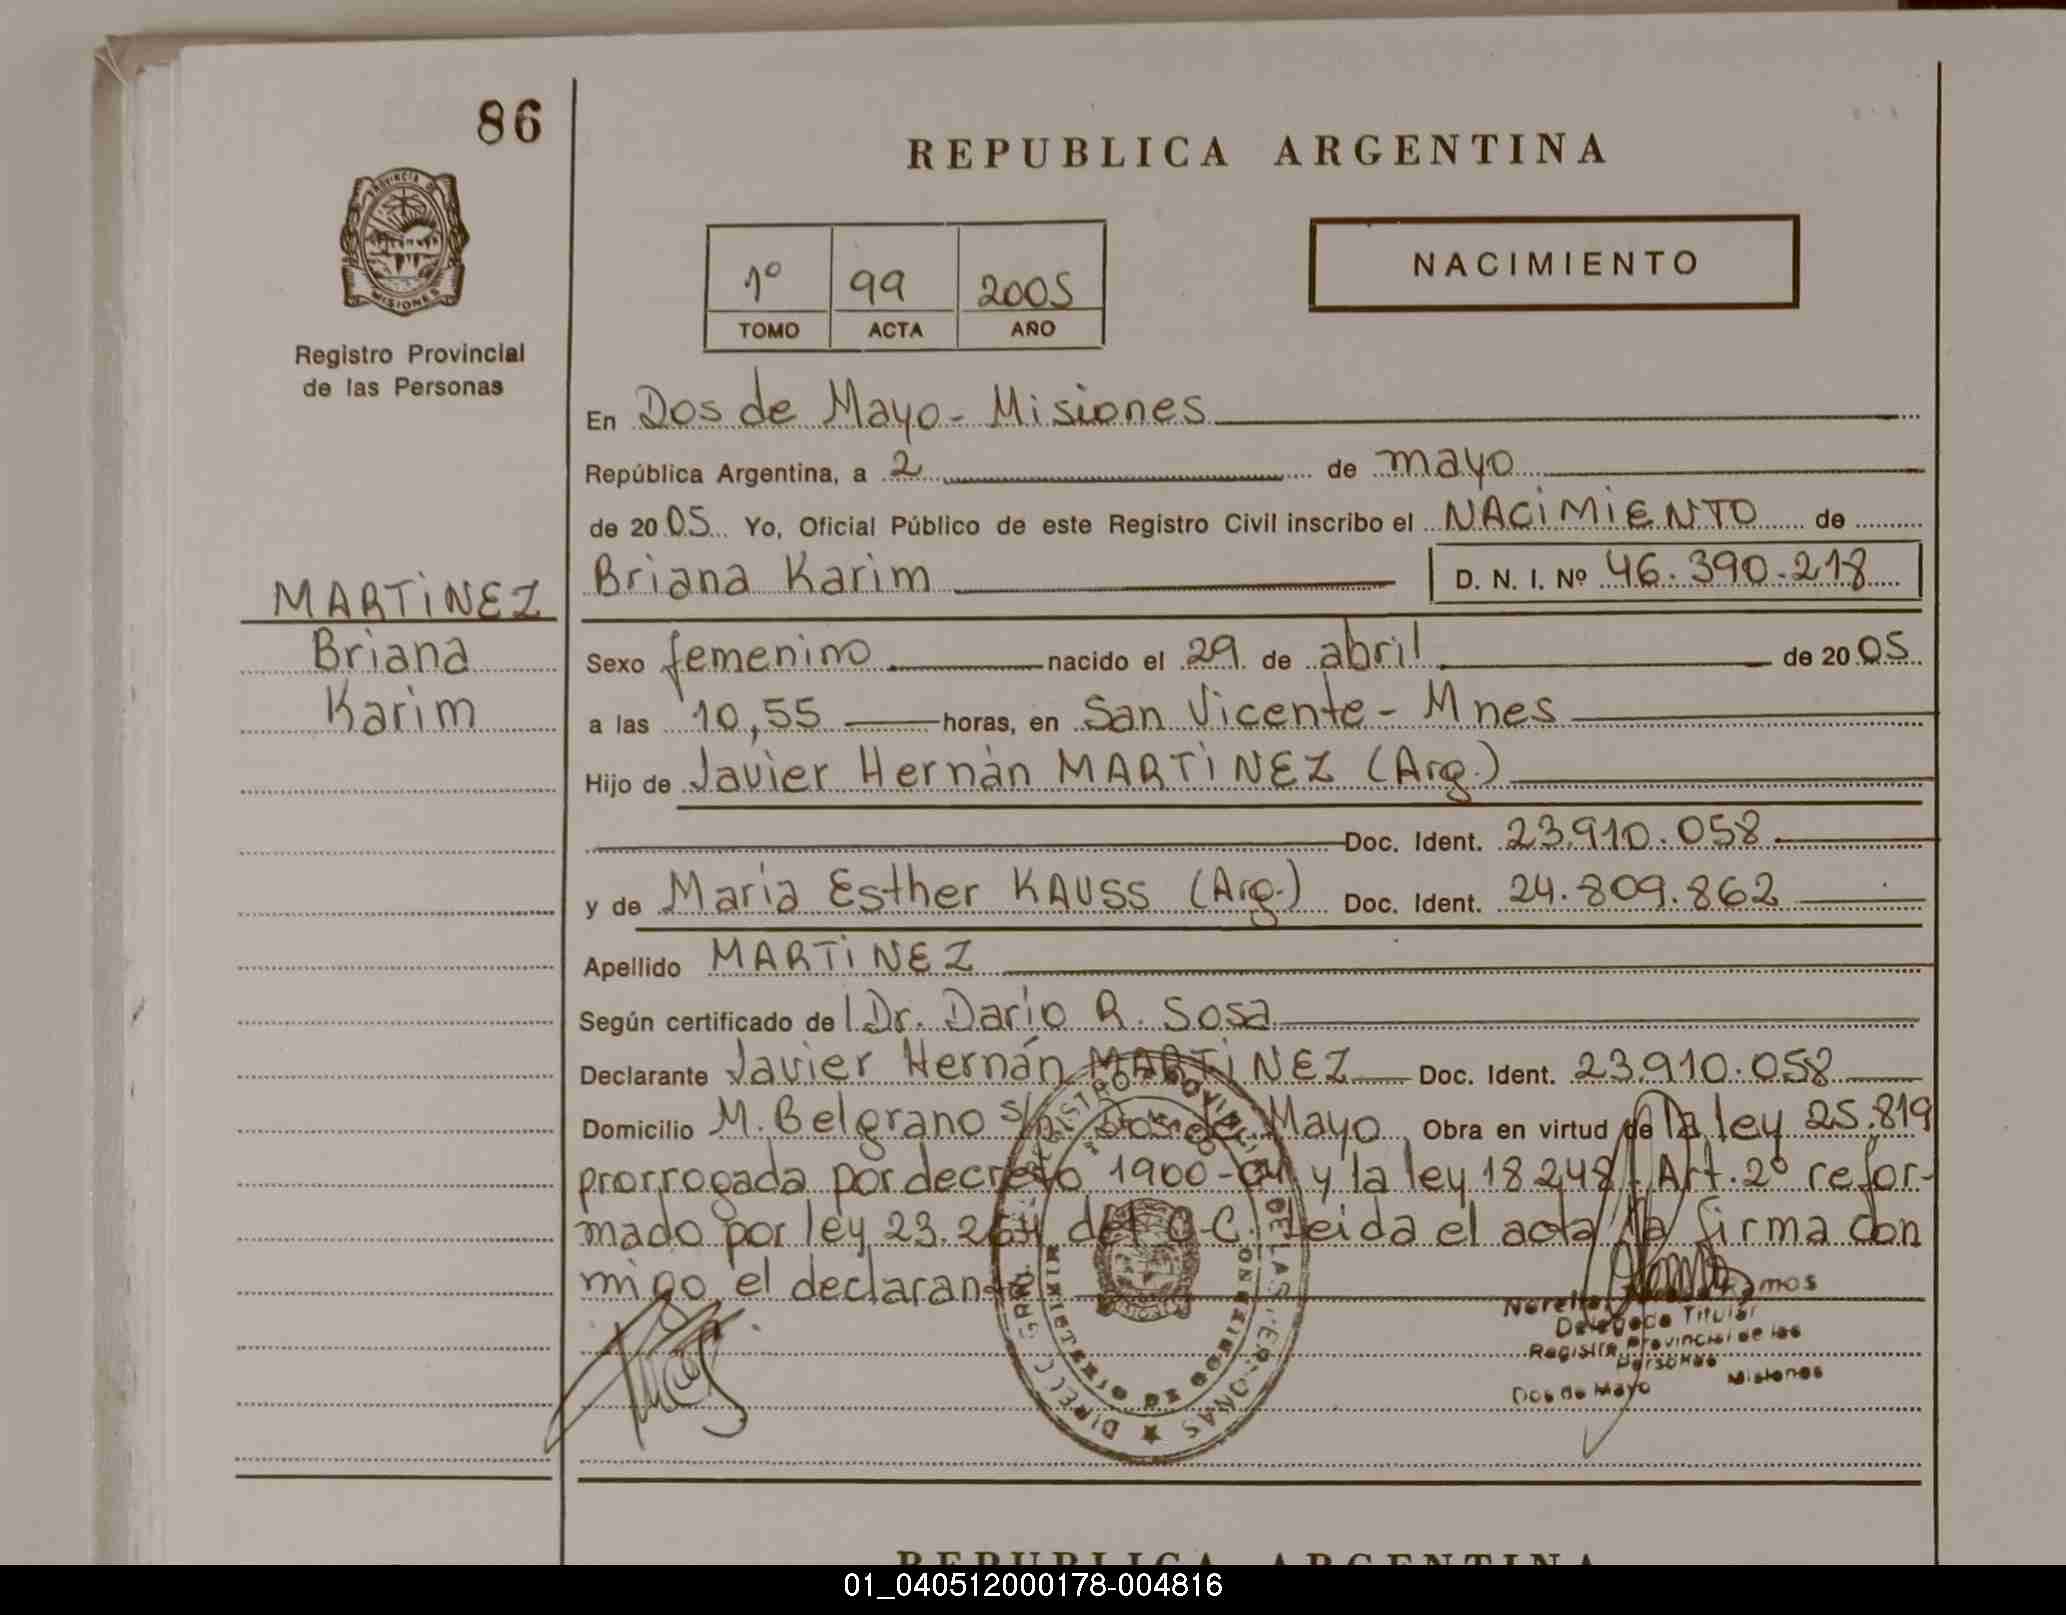 86
PROVINCIA DE
MISIONES
Registro Provincial
de las Personas
REPUBLICA ARGENTINA
1º 99 2005
TOMO ACTA AÑO
NACIMIENTO
En Dos de Mayo - Misiones
República Argentina, a 2 de mayo
de 2005 Yo, Oficial Público de este Registro Civil inscribo el NACIMIENTO de
Briana Karim D. N. I. Nº 46.390.218
MARTINEZ
Briana
Karim
Sexo femenino nacido el 29 de abril de 2005
a las 10,55 horas, en San Vicente - Mnes
Hijo de Javier Hernán MARTINEZ (Arg.)
Doc. Ident. 23.910.058
y de María Esther KAUSS (Arg.) Doc. Ident. 24.809.862
Apellido MARTINEZ
Según certificado de Dr. Darío R. Sosa
Declarante Javier Hernán MARTINEZ Doc. Ident. 23.910.058
Domicilio M. Belgrano s/n Dos de Mayo Obra en virtud de la ley 25.819
prorrogada por decreto 1900-04 y la ley 18248 Art. 2º refor-
mado por ley 23.264 del C.C. Leida el acta la firma con
migo el declarante
DIRECC. GRAL. REGISTRO PROVINCIAL DE LAS PERSONAS
MINISTERIO DE GOBIERNO
Dos de Mayo
Delegada Titular
Registro Provincial de las
Personas
Dos de Mayo Misiones
REPUBLICA ARGENTINA
01_040512000178-004816